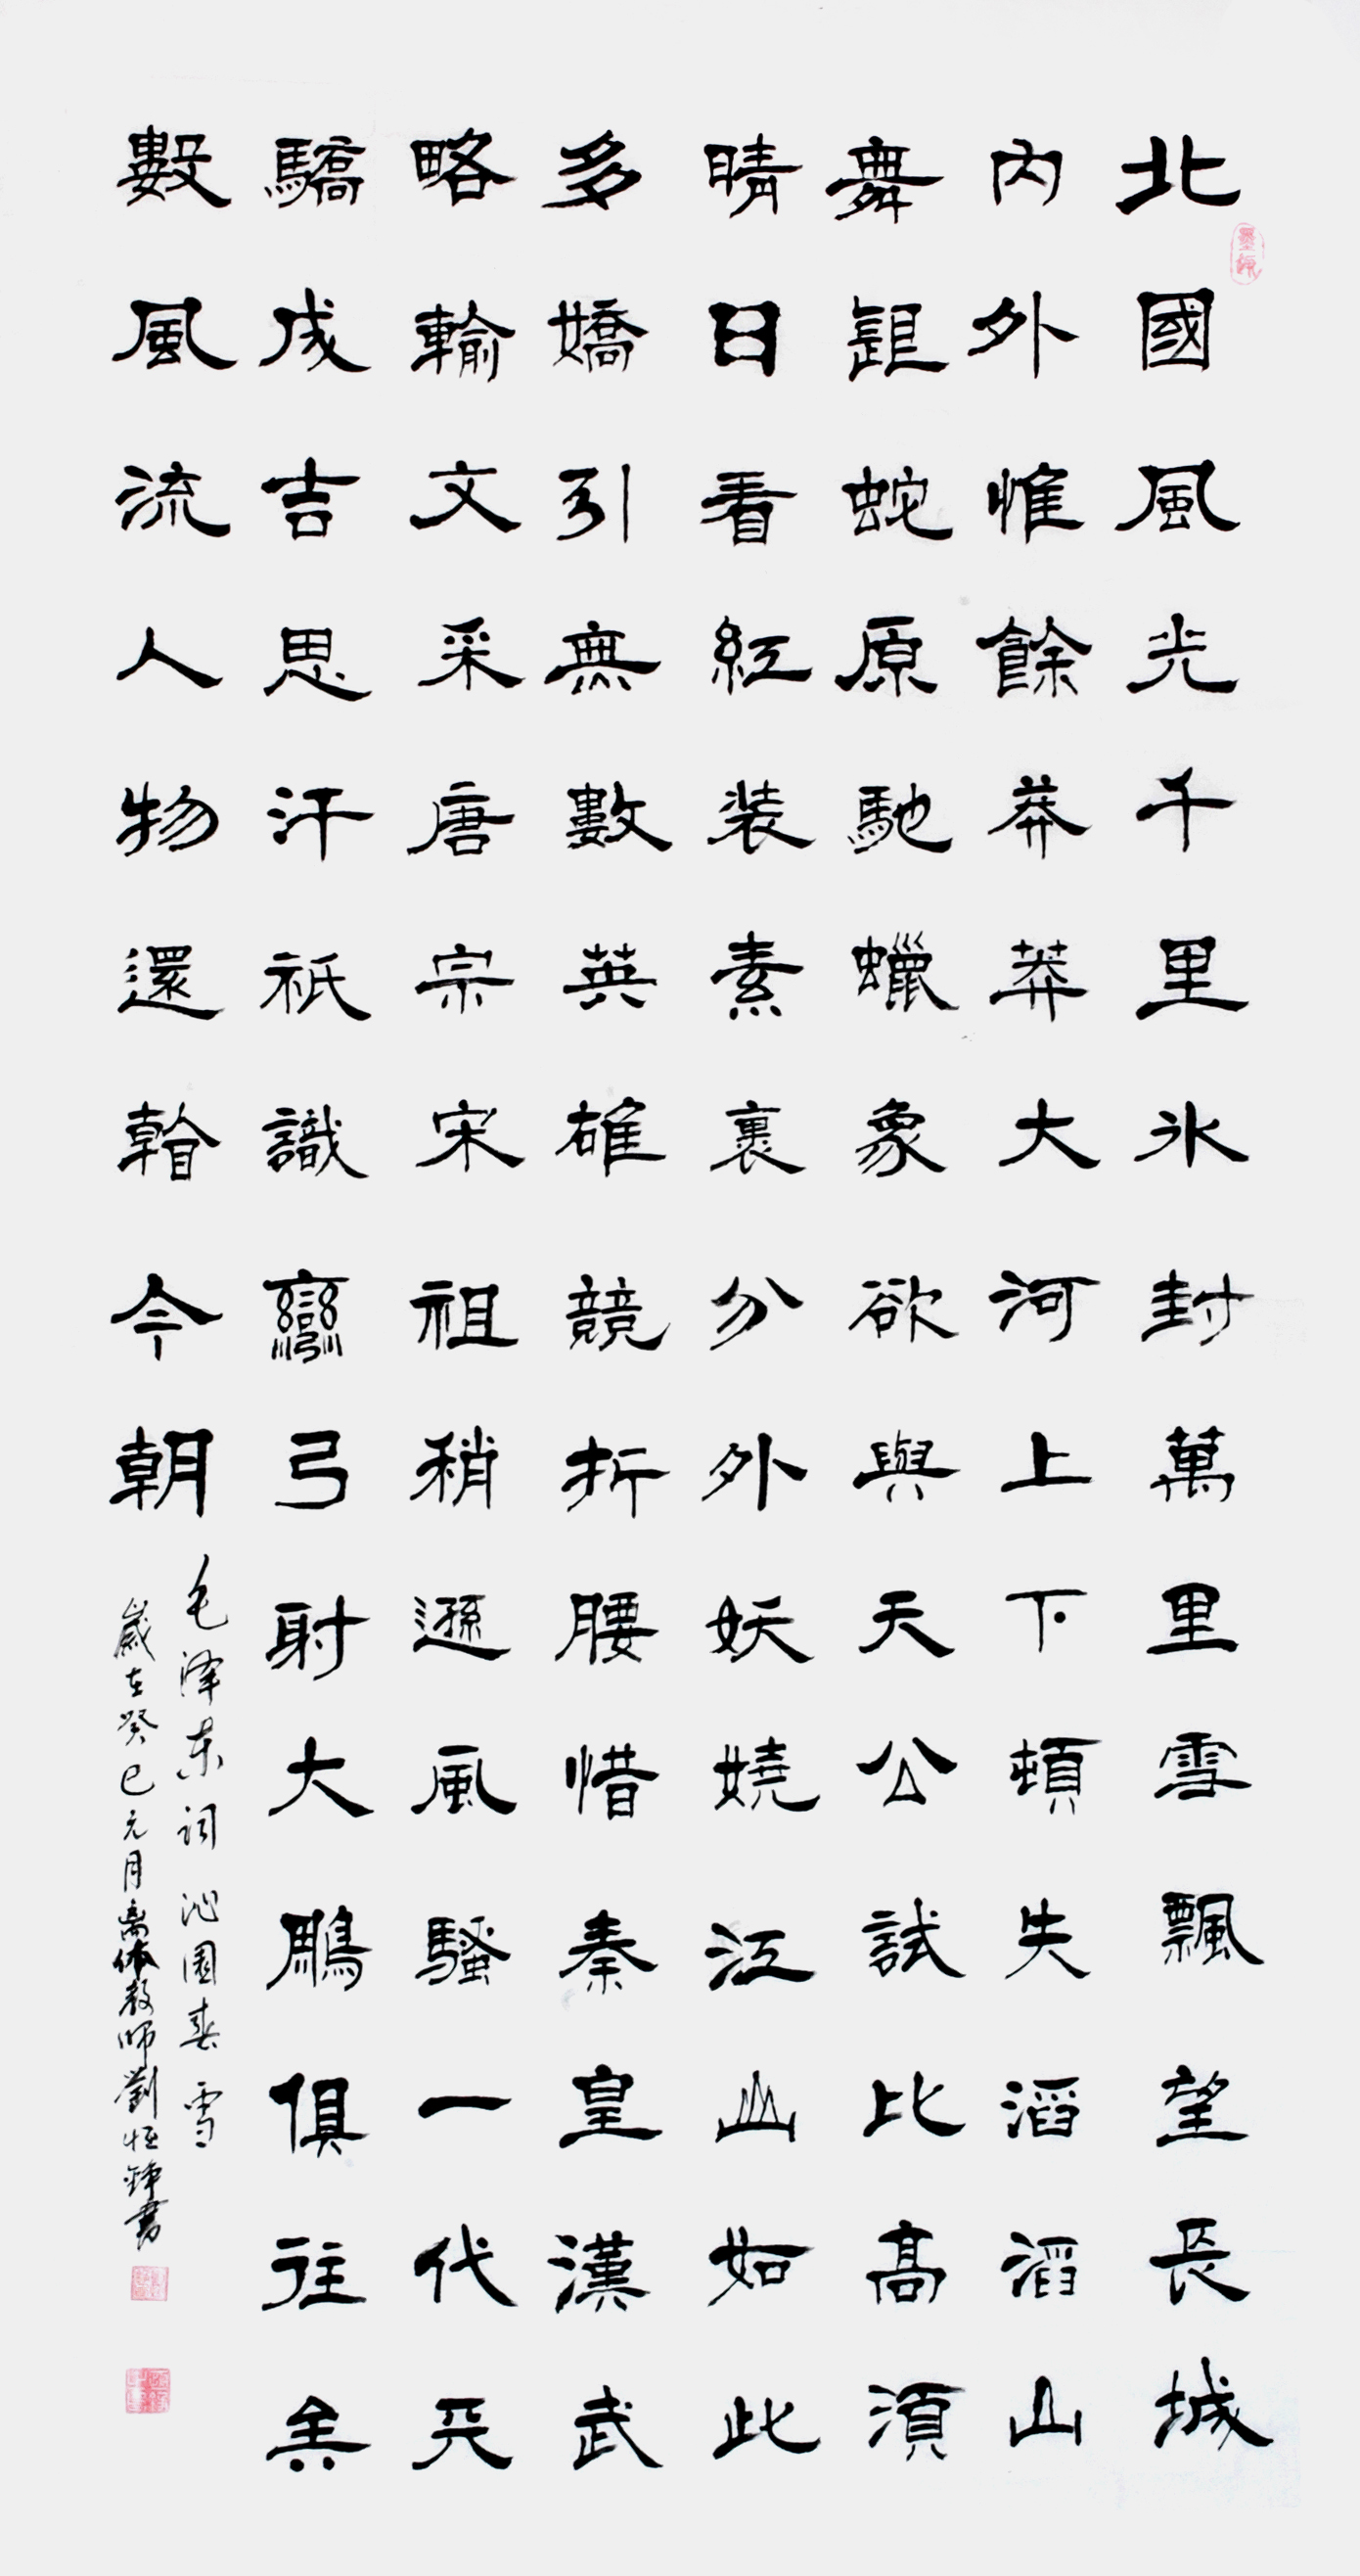 北國風光千里冰封萬里雪飄望長城
內外惟餘莽莽大河上下頓失滔滔山
舞銀蛇原馳蠟象欲與天公試比高須
晴日看紅裝素裹分外妖嬈江山如此
多嬌引無數英雄競折腰惜秦皇漢武
略輸文采唐宗宋祖稍遜風騷一代天
驕成吉思汗祇識彎弓射大鵰俱往矣
數風流人物還看今朝
毛泽东词 沁園春 雪
歲在癸巳元月离休教師劉恒錚書